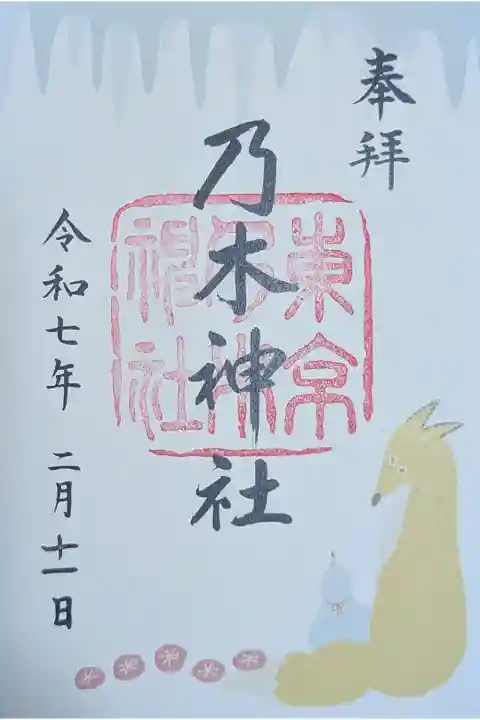 奉拝
乃木神社
東京
乃木神社
令和七年 二月十一日